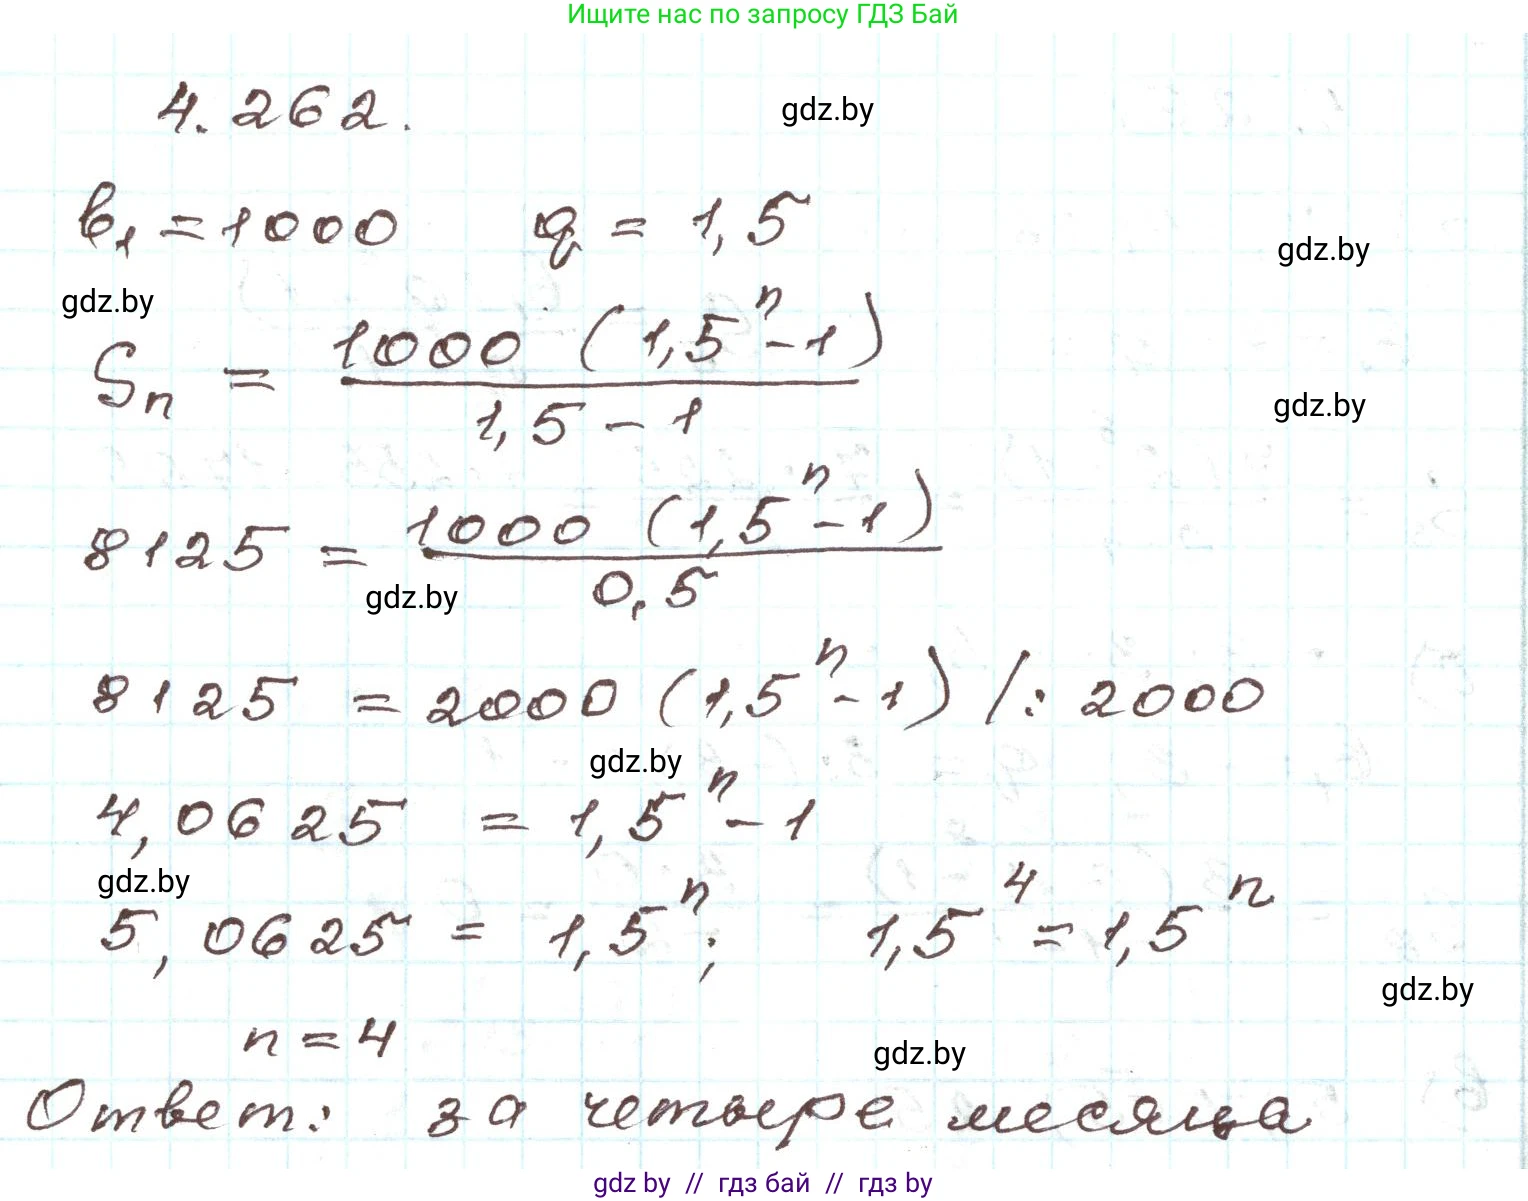 Ищите нас по запросу ГДЗ Бай
4.262.
gdz.by
b₁ = 1000 q = 1,5
gdz.by
gdz.by
Sₙ = 1000 (1,5ⁿ - 1) / 1,5 - 1
gdz.by
8125 = 1000 (1,5ⁿ - 1) / 0,5
gdz.by
8125 = 2000 (1,5ⁿ - 1) /: 2000
gdz.by
4,0625 = 1,5ⁿ - 1
gdz.by
5,0625 = 1,5ⁿ; 1,5⁴ = 1,5ⁿ
gdz.by
n = 4
gdz.by
Ответ: за четыре месяца
gdz.by // гдз бай // гдз by